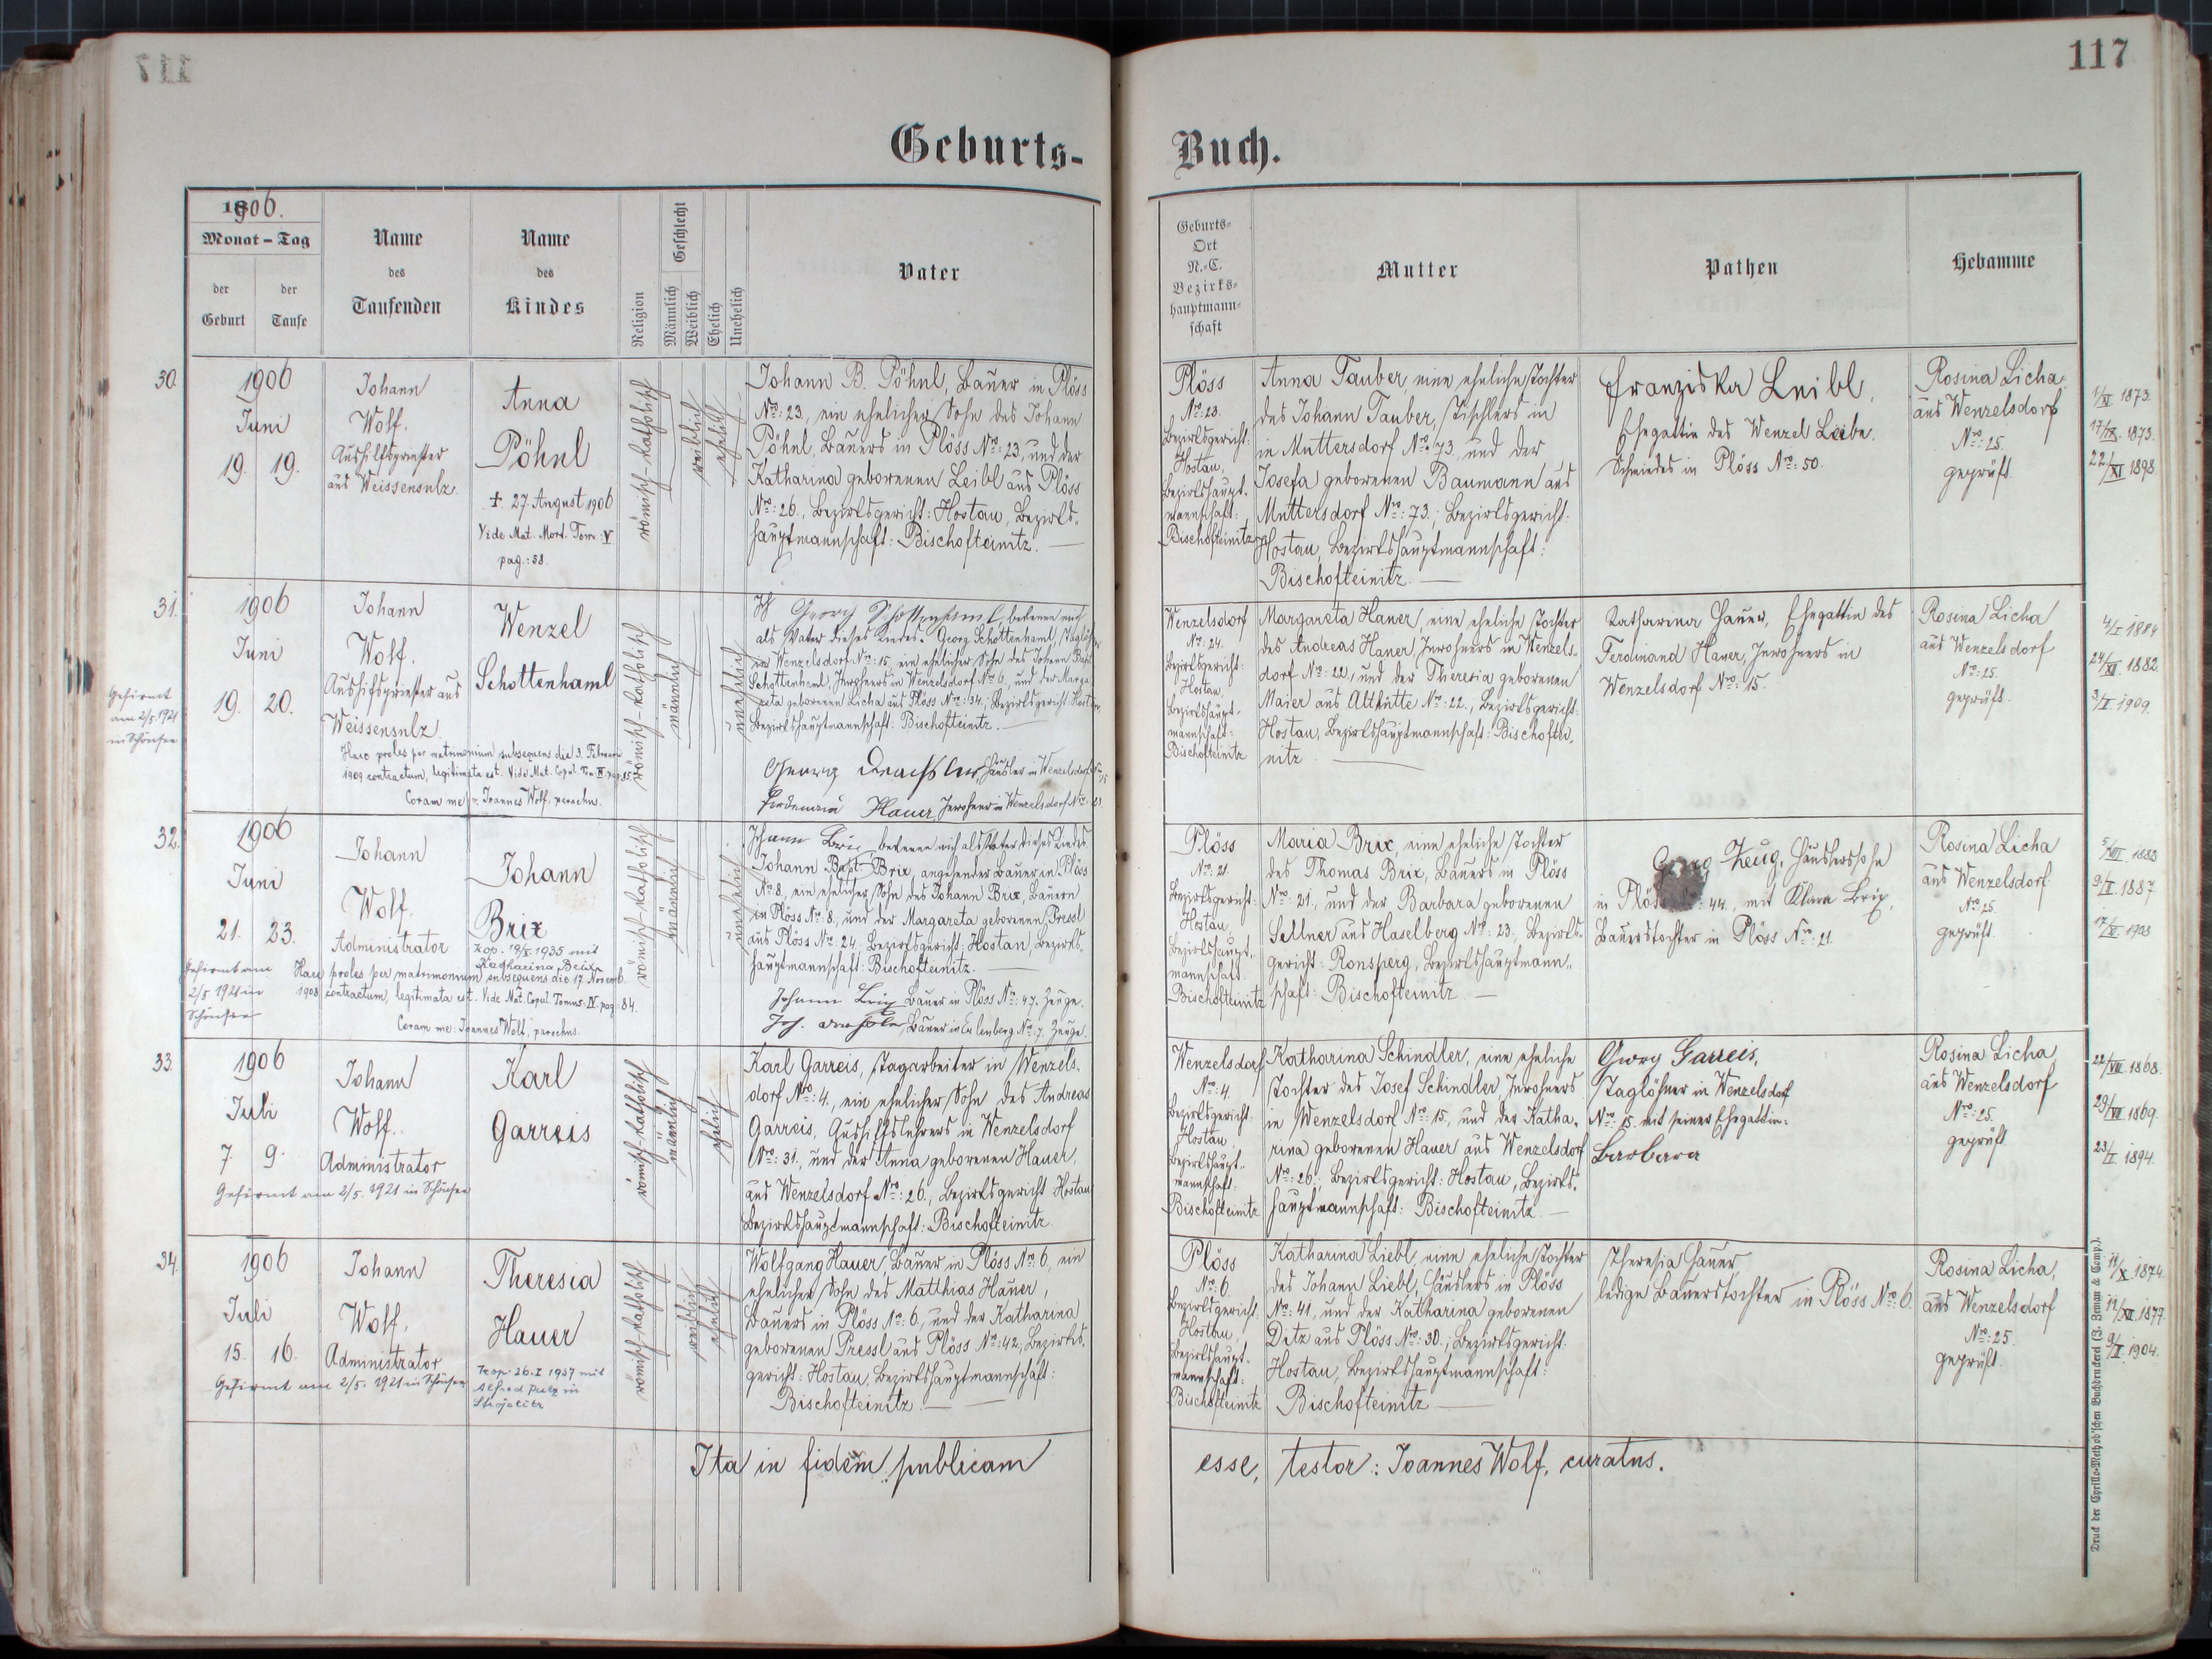 117
Geburts-
1906.
Monat – Tag
der Geburt
der Taufe
Name
des
Taufenden
Name
des
Kindes
Religion
Geschlecht
Männlich
Weiblich
Ehelich
Unehelich
Vater
30.
1906
Juni
19. 19.
Johann
Wolf.
Aushilfspriester
aus Weissensulz.
Anna
Pöhnl
+. 27. August 1906
Vide Mat. Mort. Tom.: V
pag.: 58.
römisch-katholisch
weiblich
ehelich
Johann B. Pöhnl, Bauer in Plöss
Nro: 23., ein ehelicher Sohn des Johann
Pöhnl, Bauers in Plöss Nro: 23, und der
Katharina geborenen Leibl aus Plöss
Nro: 26., Bezirksgericht: Hostau, Bezirks-
hauptmannschaft: Bischofteinitz. —
31.
1906
Juni
19. 20.
Gefirmt
am 2/5. 1921
in Schönsee
Johann
Wolf.
Aushilfspriester aus
Weissensulz.
Wenzel
Schottenhaml
Haec proles per matrimonium subsequens die 3. Februar
1909 contractum, legitimata est. Vide Mat. Copul. Tom. IV. pag. 85.
Coram me: Joannes Wolf, parochus.
römisch-katholisch
männlich
unehelich
Ich Georg Schottenhaml, bekenne mich
als Vater dieses Kindes. Georg Schottenhaml, Taglöhner
in Wenzelsdorf Nro: 15, ein ehelicher Sohn des Johann Bapt.
Schottenhaml, Inwohners in Wenzelsdorf Nro: 6., und der Marga-
reta geborenen Licha aus Plöss Nro: 34.; Bezirksgericht: Hostau,
Bezirkshauptmannschaft: Bischofteinitz. —
Georg Drachsler, Häusler in Wenzelsdorf Nro: 15
Ferdinand Hauer, Inwohner in Wenzelsdorf Nro:
32.
1906
Juni
21. 23.
Gefirmt am
2/5 1921 in
Schönsee
Johann
Wolf.
Administrator
Johann
Brix
Kop. 19/X 1935 mit
Katharina Brix
Haec proles per matrimonium subsequens die 17. Novemb.
1908 contractum, legitimata est. Vide Mat. Copul. Tomus: IV. pag: 84.
Coram me: Joannes Wolf, parochus.
römisch-katholisch
männlich
unehelich
Johann Brix, bekenne mich als Vater dieses Kindes.
Johann Bapt. Brix, angehender Bauer in Plöss
Nro: 8, ein ehelicher Sohn des Johann Brix, Bauern
in Plöss Nro: 8, und der Margareta geborenen Pressl
aus Plöss Nro: 24. Bezirksgericht: Hostau, Bezirks-
hauptmannschaft: Bischofteinitz. —
Johann Brix Bauer in Plöss Nro: 47. Zeuge.
Joh. Drachsler, Bauer in Eulenberg Nro: 7. Zeuge.
33.
1906
Juli
7 9.
Johann
Wolf.
Administrator
Gefirmt am 2/5. 1921 in Schönsee
Karl
Garreis
römisch-katholisch
männlich
ehelich
Karl Garreis, Tagarbeiter in Wenzels-
dorf Nro: 4., ein ehelicher Sohn des Andreas
Garreis, Aushilfslehrers in Wenzelsdorf
Nro: 31., und der Anna geborenen Hauer,
aus Wenzelsdorf Nro: 26., Bezirksgericht Hostau
Bezirkshauptmannschaft: Bischofteinitz.
34.
1906
Juli
15. 16.
Johann
Wolf.
Administrator
Gefirmt am 2/5. 1921 in Schönsee
Theresia
Hauer
Kop. 26. I 1937 mit
Alfred Pulz in
römisch-katholisch
weiblich
ehelich
Wolfgang Hauer, Bauer in Plöss Nro: 6, ein
ehelicher Sohn des Matthias Hauer,
Bauers in Plöss Nro: 6., und der Katharina
geborenen Pressl aus Plöss Nro: 42, Bezirks-
gericht: Hostau, Bezirkshauptmannschaft:
Bischofteinitz. —
Ita in fidem publicam
117
Buch.
Geburts-
Ort
N.-C.
Bezirks-
hauptmann-
schaft
Mutter
Pathen
Hebamme
Plöss
Nro: 23.
Bezirksgericht:
Hostau,
Bezirkshaupt-
mannschaft:
Bischofteinitz
Anna Tauber, eine eheliche Tochter
des Johann Tauber, Tischlers in
in Muttersdorf Nro: 73, und der
Josefa geborenen Baumann aus
Muttersdorf Nro: 73.; Bezirksgericht:
Hostau, Bezirkshauptmannschaft:
Bischofteinitz. —
Franziska Leibl,
Ehegattin des Wenzel Leibl,
Schmiedes in Plöss Nro: 50.
Rosina Licha
aus Wenzelsdorf
Nro: 25.
geprüft.
1/IV 1873.
17/IX. 1873.
22/XI 1898
Wenzelsdorf
Nro: 24.
Bezirksgericht:
Hostau,
Bezirkshaupt-
mannschaft:
Bischofteinitz
Margareta Hauer, eine eheliche Tochter
des Andreas Hauer, Inwohners in Wenzels-
dorf Nro: 22., und der Theresia geborenen
Maier aus Althütte Nro: 22., Bezirksgericht:
Hostau, Bezirkshauptmannschaft: Bischoftei-
nitz. —
Katharina Hauer, Ehegattin des
Ferdinand Hauer, Inwohners in
Wenzelsdorf Nro: 15.
Rosina Licha
aus Wenzelsdorf
Nro: 25.
geprüft.
4/I 1884
24/XI. 1882
3/I 1909.
Plöss
Nro: 21.
Bezirksgericht:
Hostau,
Bezirkshaupt-
mannschaft:
Bischofteinitz
Maria Brix, eine eheliche Tochter
des Thomas Brix, Bauers in Plöss
Nro: 21., und der Barbara geborenen
Sellner aus Haselberg Nro: 23., Bezirks-
gericht: Ronsperg, Bezirkshauptmann-
schaft: Bischofteinitz. —
Georg Zeug, Häuslerssohn
in Plöss 44., mit Klara Brix,
Bauerstochter in Plöss Nro: 21.
Rosina Licha
aus Wenzelsdorf
Nro: 25.
geprüft.
5/VII 1883
9/I. 1887
17/XI. 1908
Wenzelsdorf
Nro: 4.
Bezirksgericht:
Hostau,
Bezirkshaupt-
mannschaft:
Bischofteinitz
Katharina Schindler, eine eheliche
Tochter des Josef Schindler, Inwohners
in Wenzelsdorf Nro: 15., und der Katha-
rina geborenen Hauer aus Wenzelsdorf
Nro: 26., Bezirksgericht: Hostau, Bezirks-
hauptmannschaft: Bischofteinitz. —
Georg Garreis,
Taglöhner in Wenzelsdorf
Nro: 15. mit seiner Ehegattin
Barbara
Rosina Licha
aus Wenzelsdorf
Nro: 25.
geprüft
22/VII. 1868.
29/VI 1869.
23/I. 1894.
Plöss
Nro: 6.
Bezirksgericht:
Hostau,
Bezirkshaupt-
mannschaft:
Bischofteinitz
Katharina Liebl, eine eheliche Tochter
des Johann Liebl, Häuslers in Plöss
Nro: 41, und der Katharina geborenen
Ditz aus Plöss Nro: 30.; Bezirksgericht:
Hostau, Bezirkshauptmannschaft:
Bischofteinitz. —
Theresia Hauer,
ledige Bauerstochter in Plöss Nro: 6.
Rosina Licha,
aus Wenzelsdorf
Nro: 25.
geprüft.
11/X. 1874.
12/XI. 1877.
9/I. 1904.
esse, testor: Joannes Wolf, curatus.
Druck der Cyrillo-Method'schen Buchdruckerei (J. Zeman & Comp.).